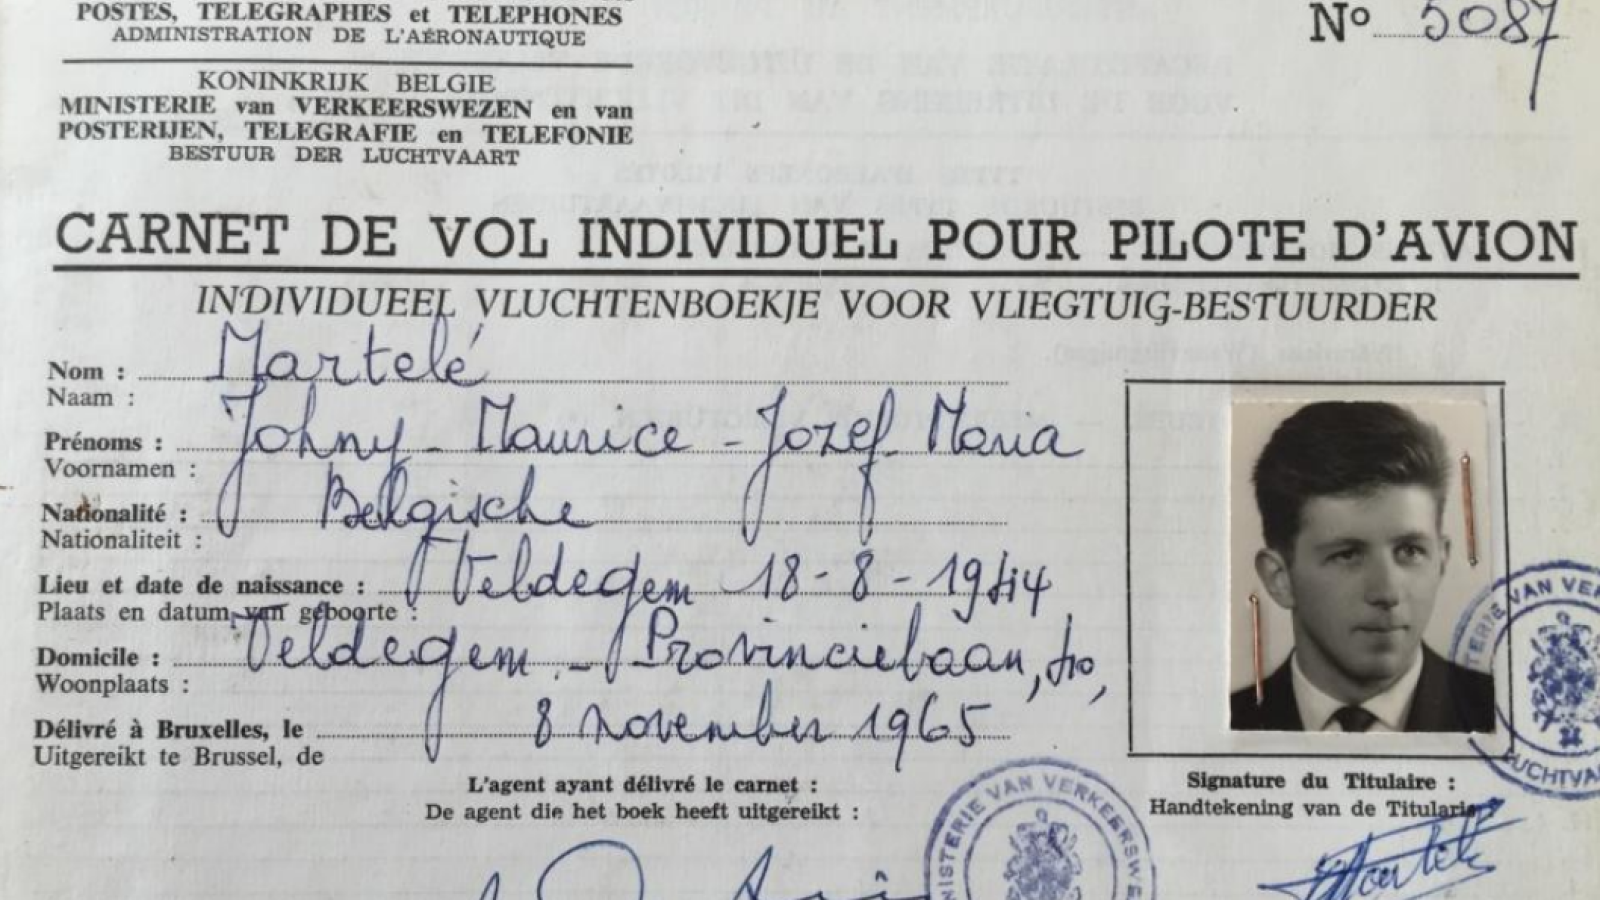 POSTES, TELEGRAPHES et TELEPHONES
ADMINISTRATION DE L'AÉRONAUTIQUE
Nº 5087
KONINKRIJK BELGIE
MINISTERIE van VERKEERSWEZEN en van
POSTERIJEN, TELEGRAFIE en TELEFONIE
BESTUUR DER LUCHTVAART
CARNET DE VOL INDIVIDUEL POUR PILOTE D'AVION
INDIVIDUEEL VLUCHTENBOEKJE VOOR VLIEGTUIG-BESTUURDER
Nom : Martelé
Naam :
Prénoms : Johny - Maurice - Jozef - Maria
Voornamen :
Nationalité : Belgische
Nationaliteit :
Lieu et date de naissance : Veldegem 18-8-1944
Plaats en datum van geboorte :
Domicile : Veldegem - Provinciebaan,
Woonplaats :
Délivré à Bruxelles, le 8 november 1965
Uitgereikt te Brussel, de
L'agent ayant délivré le carnet :
De agent die het boek heeft uitgereikt :
Signature du Titulaire :
Handtekening van de Titularis :
MINISTERIE VAN VERKEERSWE
TERIE VAN VERKE
LUCHTVA